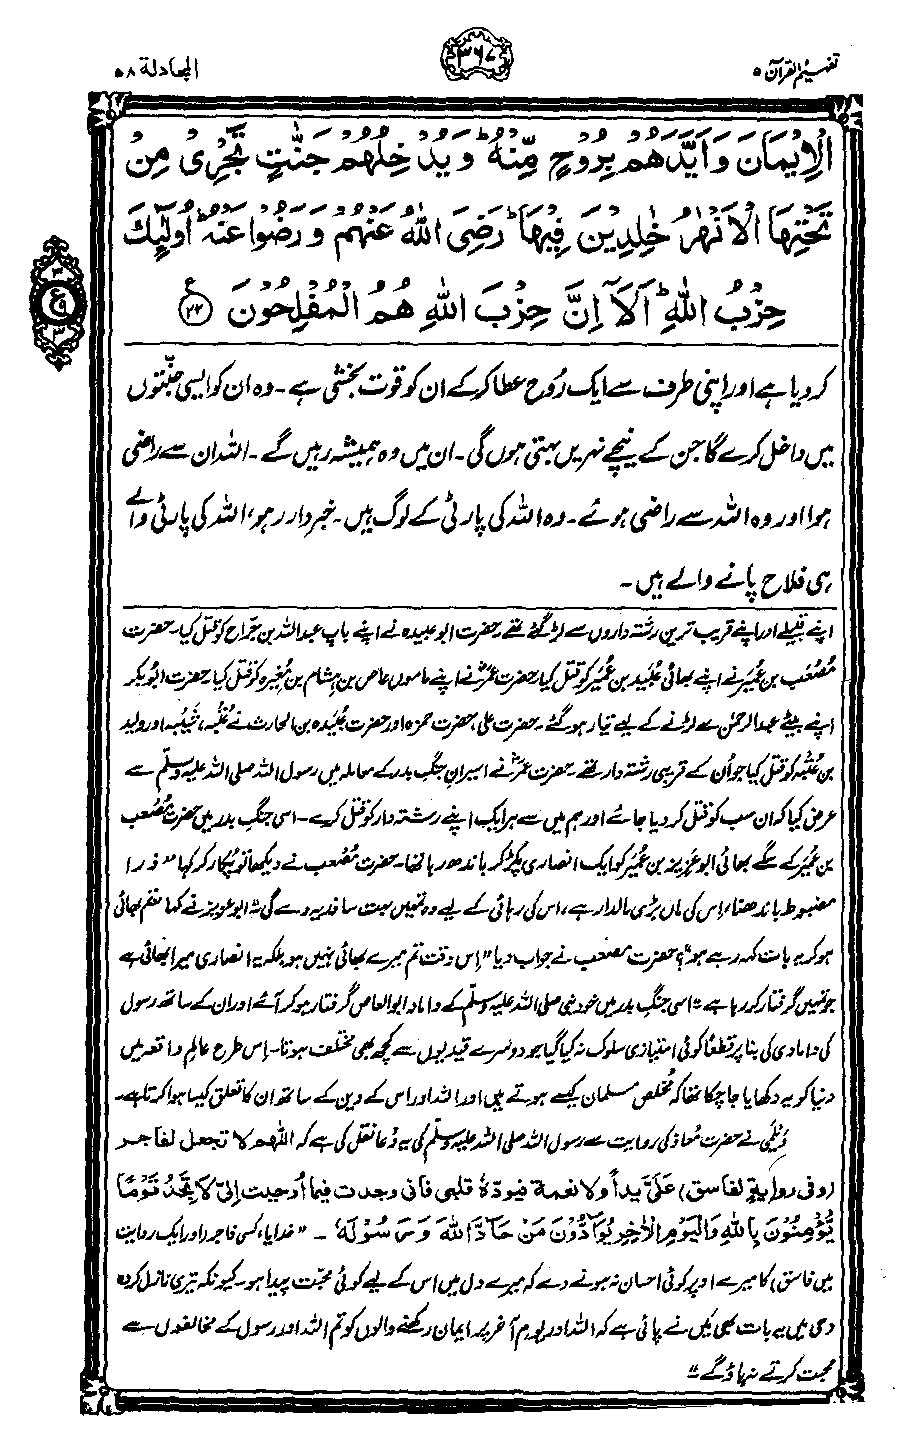 تفہیم القرآن ۵
۳۶۷
المجادلة ۵۸
الْاِيْمَانَ وَاَيَّدَهُمْ بِرُوْحٍ مِّنْهُ ؕ وَيُدْخِلُهُمْ جَنّٰتٍ تَجْرِىْ مِنْ
تَحْتِهَا الْاَنْهٰرُ خٰلِدِيْنَ فِيْهَا ؕ رَضِىَ اللّٰهُ عَنْهُمْ وَرَضُوْا عَنْهُ ؕ اُولٰٓئِكَ
حِزْبُ اللّٰهِ ؕ اَلَاۤ اِنَّ حِزْبَ اللّٰهِ هُمُ الْمُفْلِحُوْنَ ﴿۲۲﴾ ع
کر دیا ہے اور اپنی طرف سے ایک رُوح عطا کر کے ان کو قوت بخشی ہے۔ وہ ان کو ایسی جنّتوں
میں داخل کرے گا جن کے نیچے نہریں بہتی ہوں گی۔ ان میں وہ ہمیشہ رہیں گے۔ اللہ ان سے راضی
ہوا اور وہ اللہ سے راضی ہوئے۔ وہ اللہ کی پارٹی کے لوگ ہیں۔ خبردار رہو، اللہ کی پارٹی والے
ہی فلاح پانے والے ہیں۔
اپنے قبیلے اور اپنے قریب ترین رشتہ داروں سے لڑ گئے تھے۔ حضرت ابوعبیدہ نے اپنے باپ عبداللہ بن جراح کو قتل کیا۔ حضرت
مُصْعَب بن عُمَیر نے اپنے بھائی عُبَید بن عُمَیر کو قتل کیا۔ حضرت عمرؓ نے اپنے ماموں عاص بن ہشام بن مُغِیرہ کو قتل کیا۔ حضرت ابوبکر
اپنے بیٹے عبدالرحمٰن سے لڑنے کے لیے تیار ہو گئے۔ حضرت علی، حضرت حمزہ اور حضرت عُبَیدہ بن الحارث نے عُتبہ، شَیبہ اور ولید
بن عُتبہ کو قتل کیا جو اُن کے قریبی رشتہ دار تھے۔ حضرت عمرؓ نے اسیرانِ جنگِ بدر کے معاملہ میں رسول اللہ صلی اللہ علیہ وسلم سے
عرض کیا کہ ان سب کو قتل کر دیا جائے اور ہم میں سے ہر ایک اپنے رشتہ دار کو قتل کرے۔ اسی جنگِ بدر میں حضرت مُصعب
بن عُمَیر کے سگے بھائی ابوعزیز بن عُمَیر کو ایک انصاری پکڑ کر باندھ رہا تھا۔ حضرت مُصعب نے دیکھا تو پُکار کر کہا "ذرا
مضبوط باندھنا، اِس کی ماں بڑی مالدار ہے، اس کی رہائی کے لیے وہ تمہیں بہت سا فدیہ دے گی"۔ ابوعزیز نے کہا "تم بھائی
ہو کر یہ بات کہہ رہے ہو؟" حضرت مصعب نے جواب دیا "اِس وقت تم میرے بھائی نہیں ہو بلکہ یہ انصاری میرا بھائی ہے
جو تمہیں گرفتار کر رہا ہے"۔ اسی جنگِ بدر میں خود نبی صلی اللہ علیہ وسلم کے داماد ابوالعاص گرفتار ہو کر آئے اور ان کے ساتھ رسول
کی دامادی کی بنا پر قطعاً کوئی امتیازی سلوک نہ کیا گیا جو دوسرے قیدیوں سے کچھ بھی مختلف ہوتا۔ اِس طرح عالمِ واقعہ میں
دنیا کو یہ دکھایا جا چکا تھا کہ مخلص مسلمان کیسے ہوتے ہیں اور اللہ اور اس کے دین کے ساتھ ان کا تعلق کیسا ہوا کرتا ہے۔
دَیلَمی نے حضرت مُعاذ کی روایت سے رسول اللہ صلی اللہ علیہ وسلم کی یہ دُعا نقل کی ہے کہ اللھم لا تجعل لفاجر
(وفی روایۃٍ لفاسق) عَلَیَّ یداً ولا نعمۃ فیودّہٗ قلبی فانی وجدت فیما اُوحیتَ اِلیّ لَا تَجِدُ قَوْمًا
يُّؤْمِنُوْنَ بِاللّٰهِ وَالْيَوْمِ الْاٰخِرِ يُوَآدُّوْنَ مَنْ حَآدَّ اللّٰهَ وَرَسُوْلَهٗ۔ "خدایا، کسی فاجر (اور ایک روایت
میں فاسق) کا میرے اوپر کوئی احسان نہ ہونے دے کہ میرے دل میں اس کے لیے کوئی محبّت پیدا ہو۔ کیونکہ تیری نازل کردہ
وحی میں یہ بات بھی مَیں نے پائی ہے کہ اللہ اور یومِ آخر پر ایمان رکھنے والوں کو تم اللہ اور رسول کے مخالفوں سے
محبت کرتے نہ پاؤ گے"۔